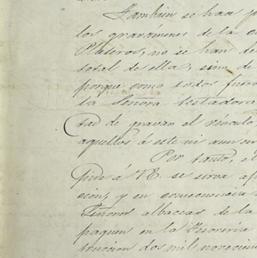 Tambien se han p
los gravamenes de la c
Plateros, no se han de
total de ella, sino de
porque como todos fuero
la Señora testadora
tad de gravar el vinculo
aquellos á este ni aun
Por tanto, el
pide á VE se sirva ap
cion, y en consecuencia
Señores albaceas de la
paguen en la Tesoreria
trucion dos mil novecien